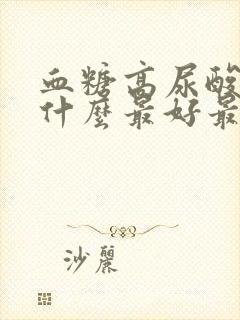 血糖高尿酸
什麼最好最
沙麗